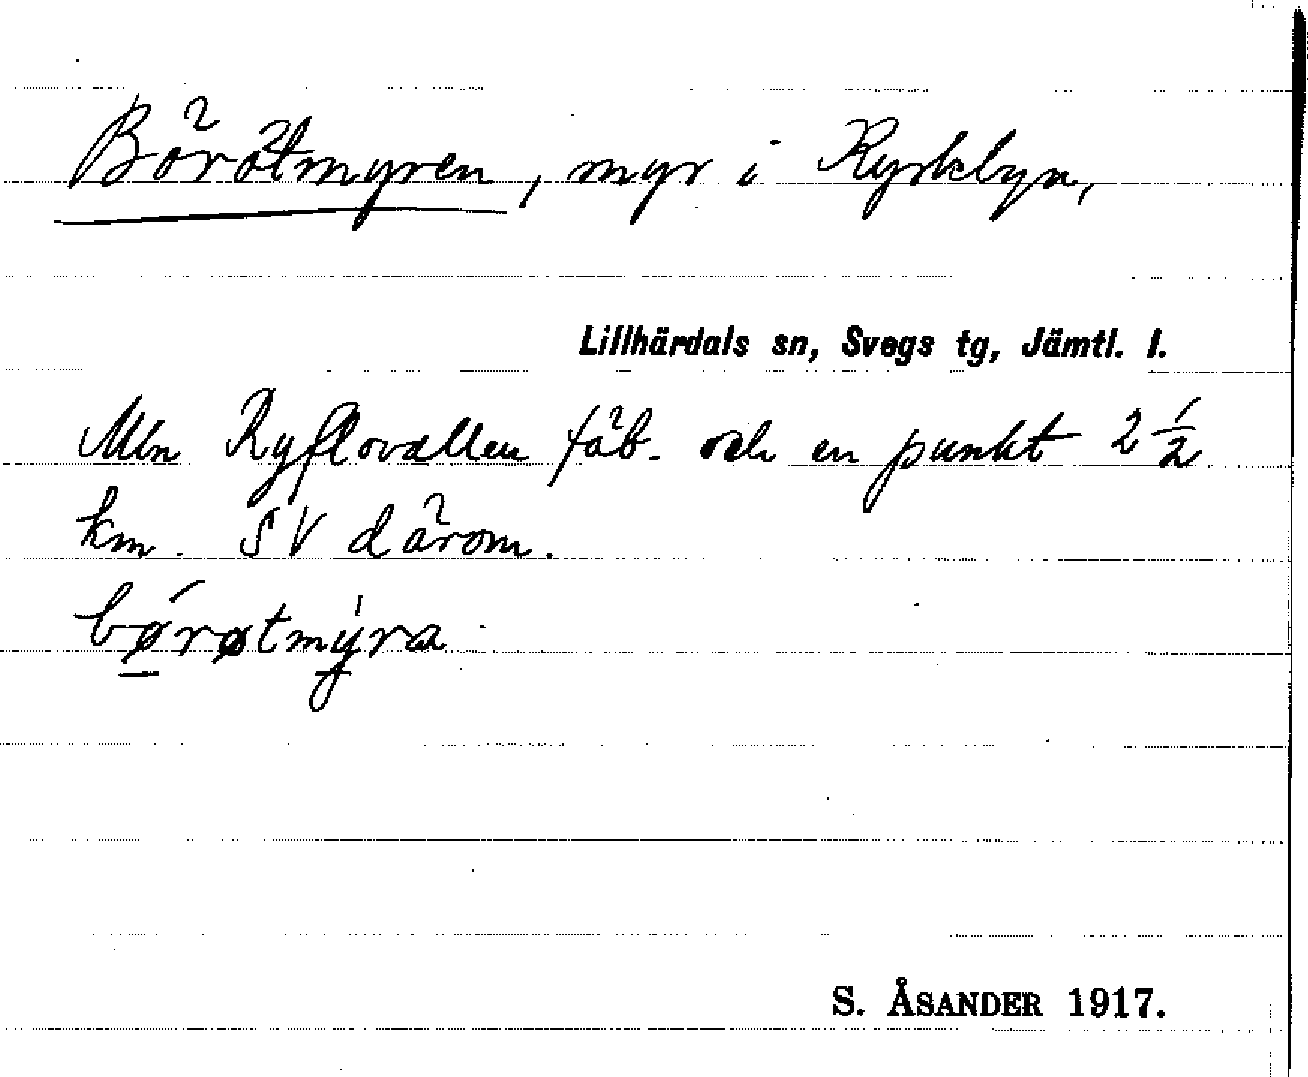 Börötmyren, myr i Kyrkbyn,
Lillhärdals sn, Svegs tg, Jämtl. l.
Mln Ryflovallen fäb. och en punkt 2 1/2
km. SV därom.
bǿ̲røtmý̲ra
S. ÅSANDER 1917.